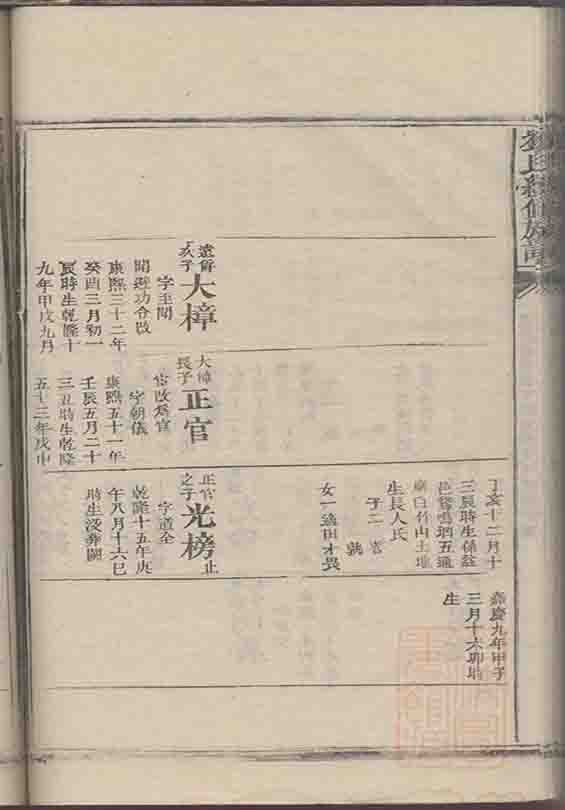 氏續修族譜
次子
大樟
字至聞
聞避功令改
康熙三十二年
癸酉三月初一
辰時生乾隆十
九年甲戌九月
大樟
長子
正官
字朝儀
康熙五十一年
壬辰五月二十
三丑時生乾隆
五十三年戊申
丁亥十二月十
三辰時生係註
邑鵞鳴垇五通
廟白竹山土堆
生長人氏
子二
女一適田才晃
正官
之子
光榜
止
字道全
乾隆十五年庚
午八月十六巳
時生沒葬闕
嘉慶九年甲子
三月十六卯時
生